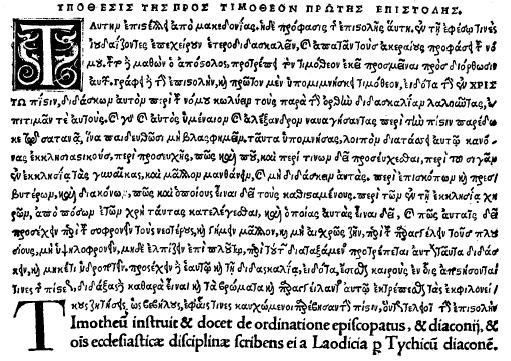 ΥΠΟΘΕΣΙΣ ΤΗΣ ΠΡΟΣ ΤΙΜΟΘΕΟΝ ΠΡΩΤΗΣ ΕΠΙΣΤΟΛΗΣ.
Ταύτην ἐπιστέλλει ἀπὸ μακεδονίας, ἡ δὲ πρόφασις τῆς ἐπιστολῆς αὕτη. ἐν τῇ ἐφέσῳ τινὲς
ἰουδαίζοντες ἐπεχείρουν ἑτεροδιδασκαλεῖν, καὶ ἀπατᾶν τοὺς ἀκεραίους προφάσει τοῦ νό
μου, μαθὼν ὁ ἀπόστολος, προτρέπει τὸν τιμόθεον ἐκεῖ προσμεῖναι πρὸς διόρθωσιν
αὐτῶν. γράφει τὴν ἐπιστολὴν, καὶ πρῶτον μὲν ὑπομιμνήσκει τιμόθεον, εἰδότα τὴν ἐν χρισ
τῷ πίστιν, διδάσκων αὐτὸν περὶ τοῦ νόμου κωλύειν τοὺς παρὰ τὴν ὀρθὴν διδασκαλίαν λαλοῦντας, ἐ
πιτιμᾶν τε αὐτούς. καὶ αὐτὸς ὑμέναιον καὶ ἀλέξανδρον ναυαγήσαντας περὶ τὴν πίστιν παρέδω
κε τῷ σατανᾷ, ἵνα παιδευθῶσι μὴ βλασφημεῖν, ταῦτα ὑπομνήσας, λοιπὸν διατάσσει αὐτῷ κανό
νας ἐκκλησιαστικοὺς, περὶ προσευχῆς, πῶς, καὶ ποῦ, καὶ περὶ τίνων δεῖ προσεύχεσθαι, περὶ τοῦ σιγᾶν
ἐν ἐκκλησίᾳ τὰς γυναῖκας, καὶ μᾶλλον μανθάνειν, καὶ μὴ διδάσκειν αὐτάς. περὶ ἐπισκόπων καὶ πρεσ
βυτέρων, καὶ διακόνων, πῶς καὶ ὁποίους εἶναι δεῖ τοὺς καθισαμένους. περὶ τῶν ἐν τῇ ἐκκλησίᾳ χη
ρῶν, ἀπὸ πόσων ἐτῶν χρὴ ταύτας καταλέγεσθαι, καὶ ὁποίας αὐτὰς εἶναι δεῖ, καὶ πῶς αὐταῖς δεῖ
προσέχειν σωφρονεῖν τοὺς νεωτέρους, καὶ γαμεῖν μᾶλλον, καὶ μὴ αἰσχρῶς ζῆν, παραγγέλλειν τοῖς πλου
σίοις, μὴ ὑψηλοφρονεῖν, μηδὲ ἐλπίζειν ἐπὶ πλούτῳ, διαταξάμενος προτρέπεται αὐτὸν ταῦτα διδάσ
κειν, καὶ μηκέτι ὑδροποτεῖν, προσέχειν ἑαυτῷ καὶ τῇ διδασκαλίᾳ, εἰδότα, ἐσομένους καιροὺς ἐν οἷς ἀποστήσονταί
τινες τῆς πίστεως, διδάξας καθαρὰ εἶναι τὰ βρώματα καὶ παραγγείλας αὐτῷ ἐκτρέπεσθαι τὰς ἐκφιλονεί
κους ζητήσεις, ὡς βεβήλους, ἐφ᾽ αἷς τινες καυχώμενοι περὶ τὴν πίστιν, οὕτω τελειοῖ τὴν ἐπιστολήν
Timotheū instruit & docet de ordinatione episcopatus, & diaconij, &
oīs ecclesiasticæ disciplinæ scribens ei a Laodicia p Tychicū diaconē.